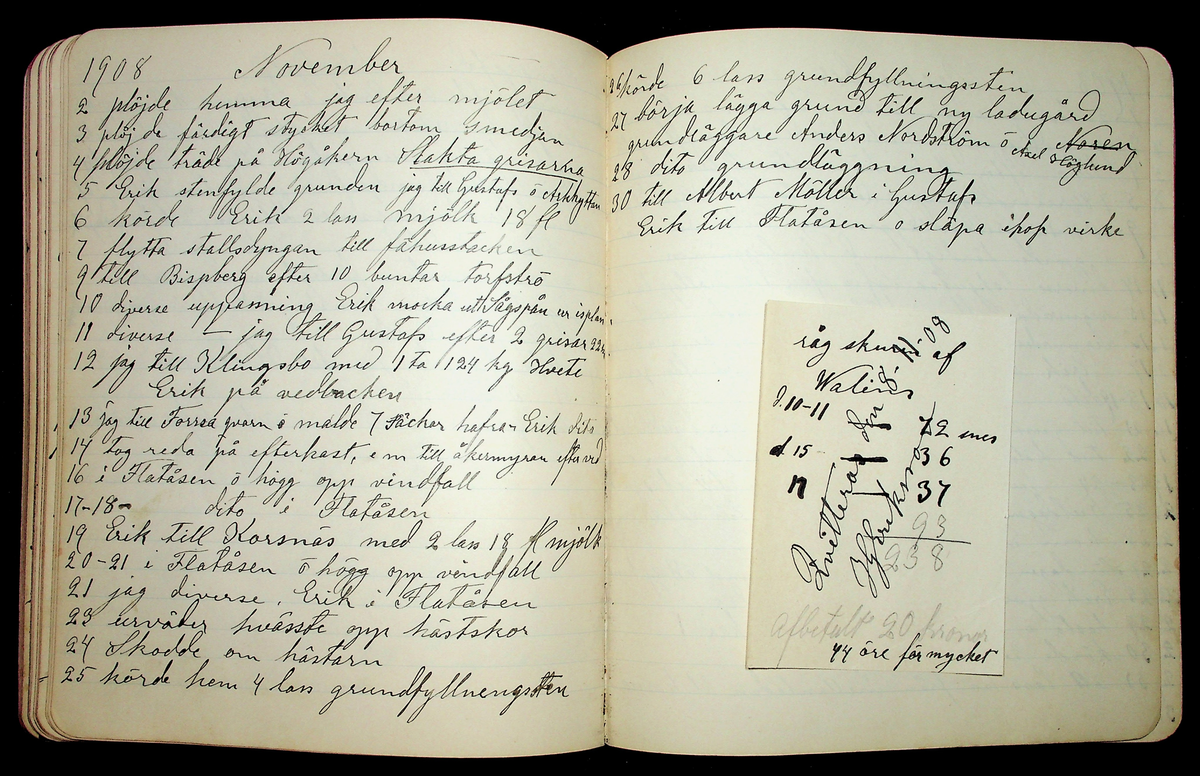 1908 November
2 plöjde hemma jag efter mjölet
3 plöjde färdigt stycket bortom smedjan
4 plöjde träde på Högåkern Slakta grisarna
5 Erik stenfylde grunden jag till Gustafs ö Arkhyttan
6 körde Erik 2 lass mjölk 18 fl
7 flytta stallsdyngan till fähusstacken
9 till Bispberg efter 10 buntar torfströ
10 diverse uppassning Erik mocka utt Sågspån ur isplan
11 diverse — jag till Gustafs efter 2 grisar 22
12 jag till Klingsbo med 1 ta 124 kg Hvete
Erik på vedbacken
13 jag till Forssa qvarn ö malde 7 säckar hafra Erik dito
14 tog reda på efterkast, e m till åkermyran efter ved
16 i Flatåsen ö högg opp vindfall
17-18- dito i Flatåsen
19 Erik till Korsnäs med 2 lass 18 fl mjölk
20-21 i Flatåsen ö högg opp vindfall
21 jag diverse, Erik i Flatåsen
23 urväder hvässte opp hästskor
24 Skodde om hästarn
25 körde hem 4 lass grundfyllnengssten
26 körde 6 lass grundfyllningssten
27 börja lägga grund till ny ladugård
grundläggare Anders Nordström ö Noren
Axel Höglund
28 dito grundläggning
30 till Albert Möller i Gustafs
Erik till Flatåsen o släpa ihop virke
råg skuren af
Walins
d. 10-11 72 mes
d 15 - 36
17 37
93
238
Qvitteras den 8/11-08
Hj Erikson
afbetalt 20 kronor
44 öre för mycket